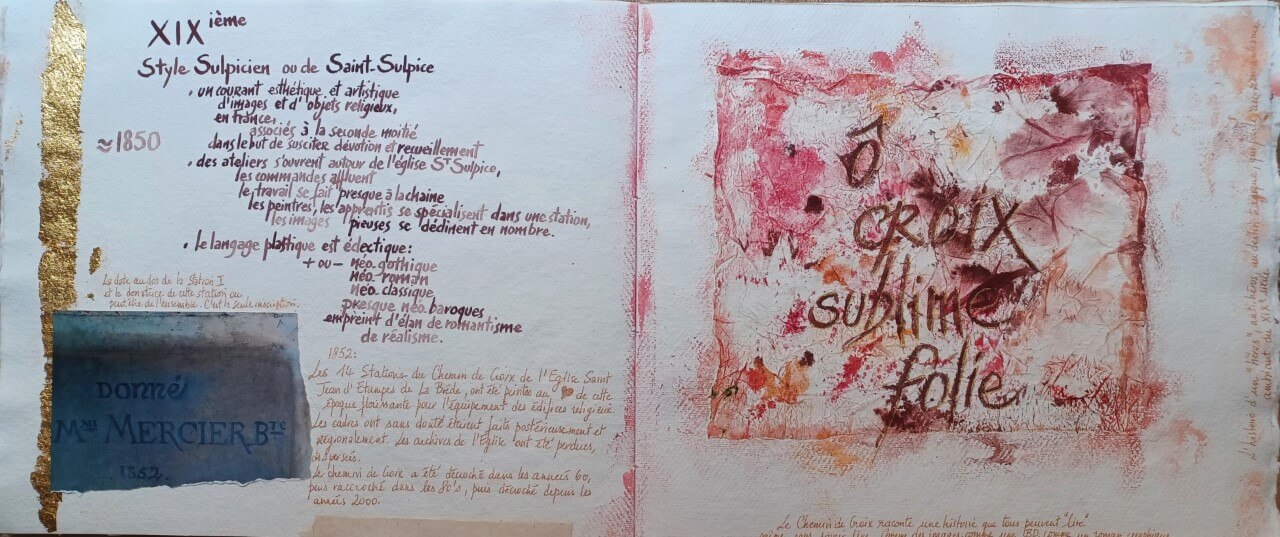 XIXième
Style Sulpicien ou de Saint-Sulpice
• un courant esthétique et artistique
d'images et d'objets religieux,
en france,
associés à la seconde moitié
≈1850
dans le but de susciter dévotion et recueillement
• des ateliers s'ouvrent autour de l'église St Sulpice,
les commandes affluent
le travail se fait presque à la chaine
les peintres, les apprentis se spécialisent dans une station,
les images pieuses se déclinent en nombre.
• le langage plastique est éclectique:
+ ou - néo-gothique
néo-roman
néo-classique
presque néo-baroques
empreint d'élan de romantisme
de réalisme.
La date au dos de la Station I
et la donatrice de cette station ou
peut être de l'ensemble. C'est la seule inscription.
DONNÉ
MERCIER
1852.
1852:
Les 14 Stations du Chemin de Croix de l'Eglise Saint
Jean d'Etampes de La Brède, ont été peintes au ♥ de cette
époque florissante pour l'équipement des édifices religieux.
Les cadres ont sans doute étaient faits postérieurement et
régionalement. Les archives de l'Eglise ont été perdues,
Le chemin de Croix a été décroché dans les années 60,
puis raccroché dans les 80's, puis décroché depuis les
années 2000.
ô
CROIX
sublime
folie
Le Chemin de Croix raconte une histoire que tous peuvent "lire"
L'histoire d'un "héros"
du XIXe siècle